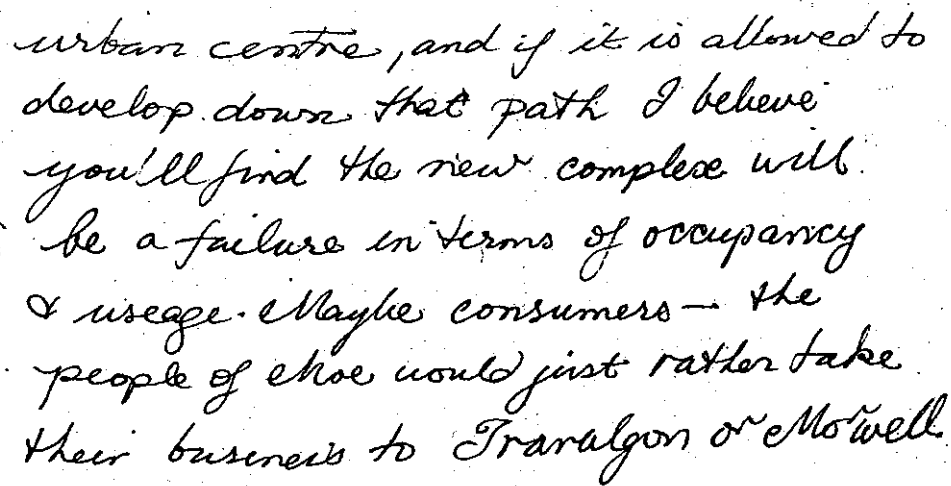 urban centre, and if it is allowed to
develop down that path I believe
you'll find the new complex will
be a failure in terms of occupancy
& useage. Maybe consumers - the
people of Moe would just rather take
their business to Traralgon or Morwell